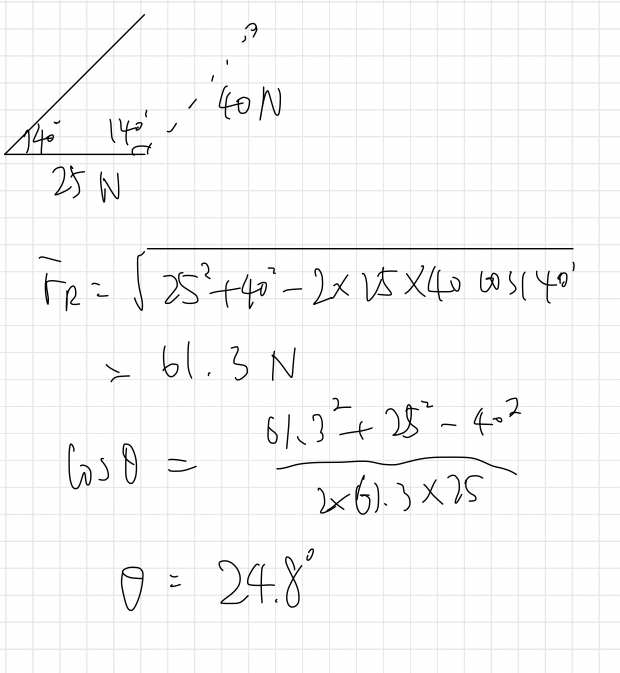 40° 140° 40 N
25 N
F_R = √(25² + 40² - 2 × 25 × 40 cos 140°)
= 61.3 N
Cos θ = (61.3² + 25² - 40²) / (2 × 61.3 × 25)
θ = 24.8°